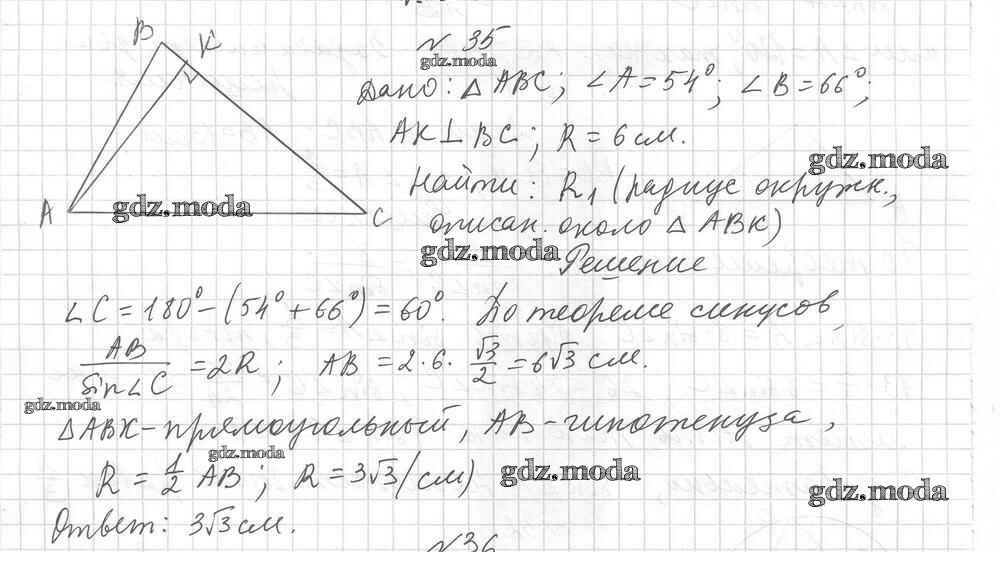 B K
№ 35
gdz.moda
Дано: △ ABC; ∠A=54°; ∠B=66°;
AK⊥BC; R=6см.
gdz.moda
Найти: R₁ (радиус окружн.,
A gdz.moda C
описан. около △ ABK)
gdz.moda
Решение
∠C=180°-(54°+66°)=60°. По теореме синусов,
AB/sin∠C =2R; AB=2·6·√3/2=6√3 см.
gdz.moda
△ABK-прямоугольный, AB-гипотенуза,
gdz.moda
R=1/2 AB; R=3√3(см)
gdz.moda
gdz.moda
Ответ: 3√3см.
№36